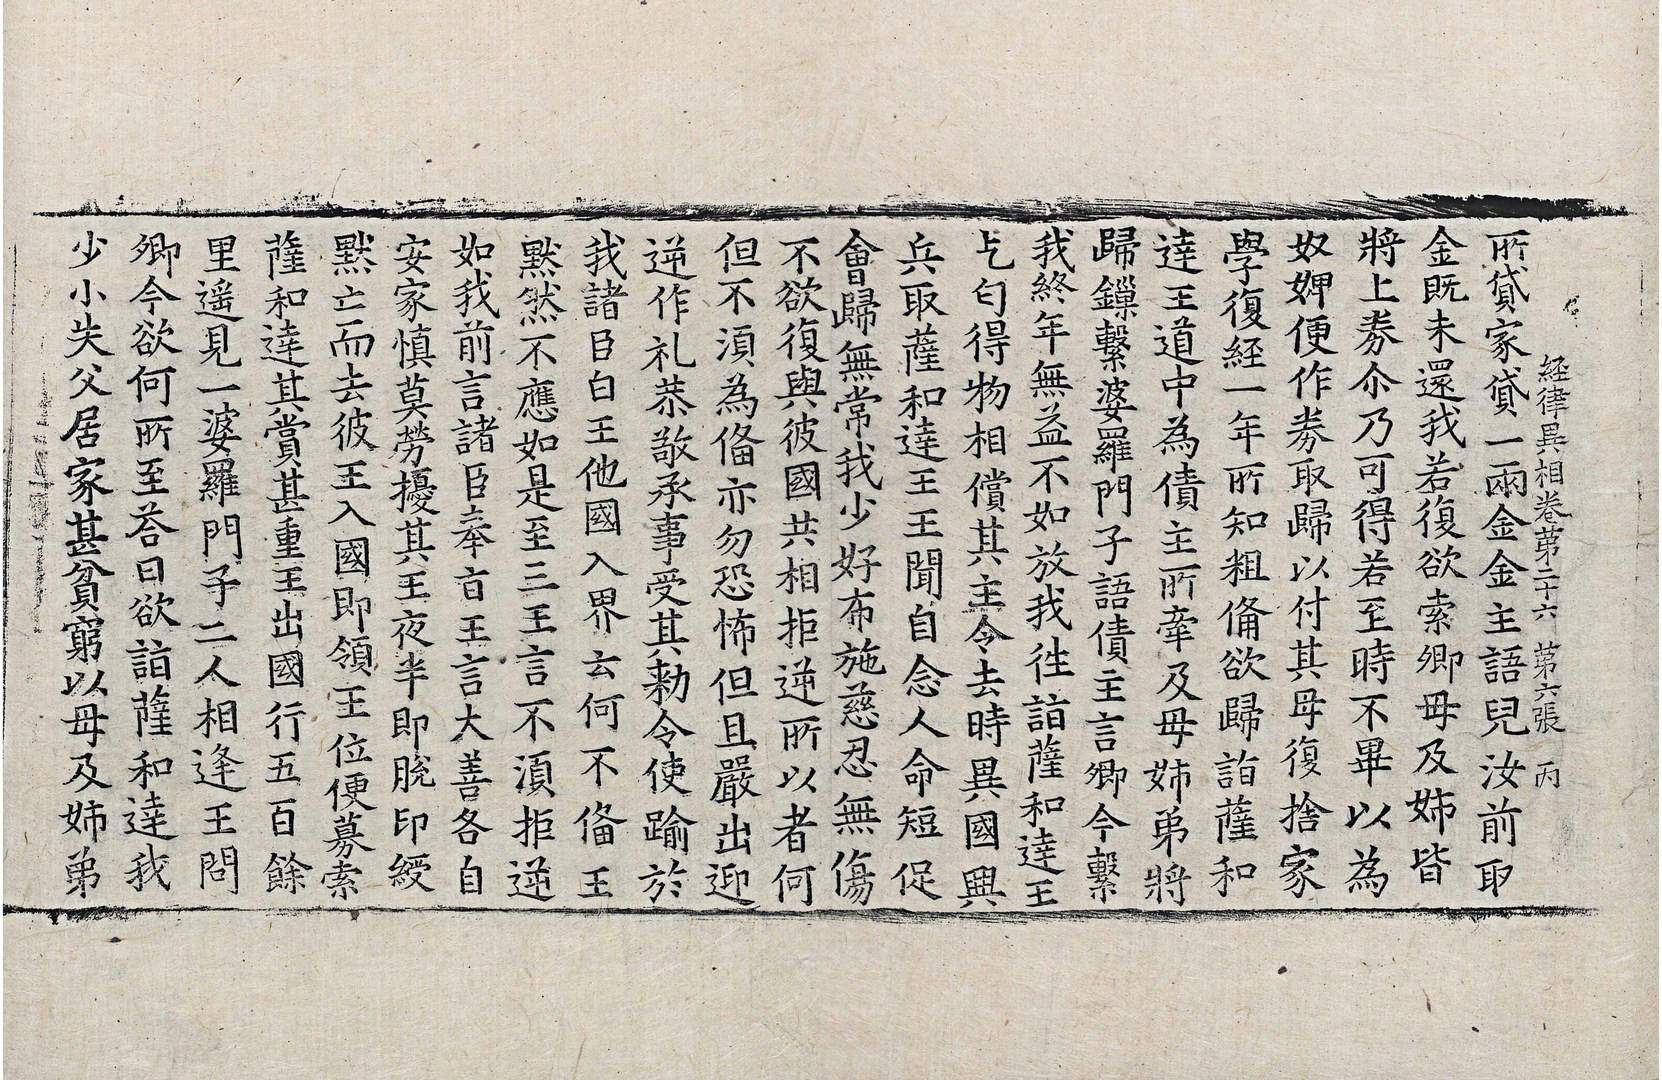 経律異相卷第二十六 第六張 丙
所貸家貸一兩金金主語兒汝前取
金既未還我若復欲索卿母及姉皆
將上券尒乃可得若至時不畢以為
奴婢便作券取歸以付其母復捨家
學復経一年所知粗俻欲歸詣薩和
達王道中為債主所牽及母姉弟將
歸鏁繫婆羅門子語債主言卿今繫
我終年無益不如放我徃詣薩和達王
乞匂得物相償其主令去時異國興
兵取薩和達王王聞自念人命短促
會歸無常我少好布施慈忍無傷
不欲復與彼國共相拒逆所以者何
但不湏為俻亦勿恐怖但且嚴出迎
逆作礼恭敬承事受其勑令使踰於
我諸臣白王他國入界云何不俻王
黙然不應如是至三王言不湏拒逆
如我前言諸臣奉㫖王言大善各自
安家慎莫勞擾其王夜半即脫印綬
黙亡而去彼王入國即領王位便募索
薩和達其賞甚重王出國行五百餘
里遥見一婆羅門子二人相逢王問
卿今欲何所至荅曰欲詣薩和達我
少小失父居家甚貧窮以母及姉弟